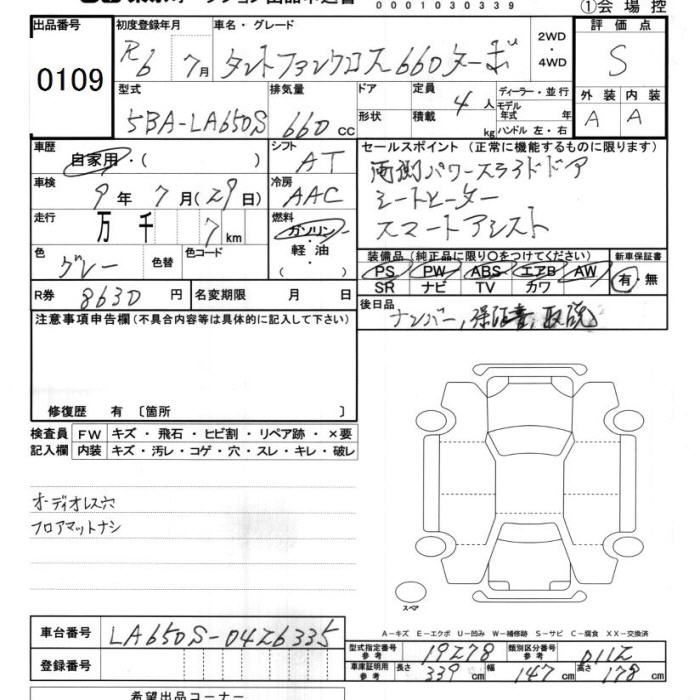 0001030339
①会場控
出品番号
0109
初度登録年月
R6 7月
車名・グレード
タントファンクロス660ターボ
2WD
・
4WD
評価点
S
外装 内装
A A
型式
5BA-LA650S
排気量
660 cc
ドア
形状
定員
4人
積載
kg
ディーラー・並行
モデル
年式 年
ハンドル 左・右
車歴
自家用・( )
シフト
AT
車検
9年 7月(29日)
冷房
AAC
走行
万 千 7 km
燃料
ガソリン
・
軽油
・
( )
色
グレー
色替
色コード
R券 8630 円
名変期限 月 日
セールスポイント(正常に機能するものに限ります)
両側パワースライドドア
シートヒーター
スマートアシスト
装備品(純正品に限り○をつけてください)
PS PW ABS エアB AW
SR ナビ TV カワ
新車保証書
有・無
後日品
ナンバー, 保証書, 取説
注意事項申告欄(不具合内容等は具体的に記入して下さい)
修復歴 有〔箇所 〕
検査員 FW キズ・飛石・ヒビ割・リペア跡・×要
記入欄 内装 キズ・汚レ・コゲ・穴・スレ・キレ・破レ
オーディオレス穴
フロアマットナシ
スペア
A-キズ E-エクボ U-凹み W-補修跡 S-サビ C-腐食 XX-交換済
車台番号 LA650S-0426335
登録番号
型式指定番号
参考
19278
類別区分番号
参考
0112
車庫証明用
参考
長さ 339 cm 幅 147 cm 高さ 178 cm
希望出品コーナー